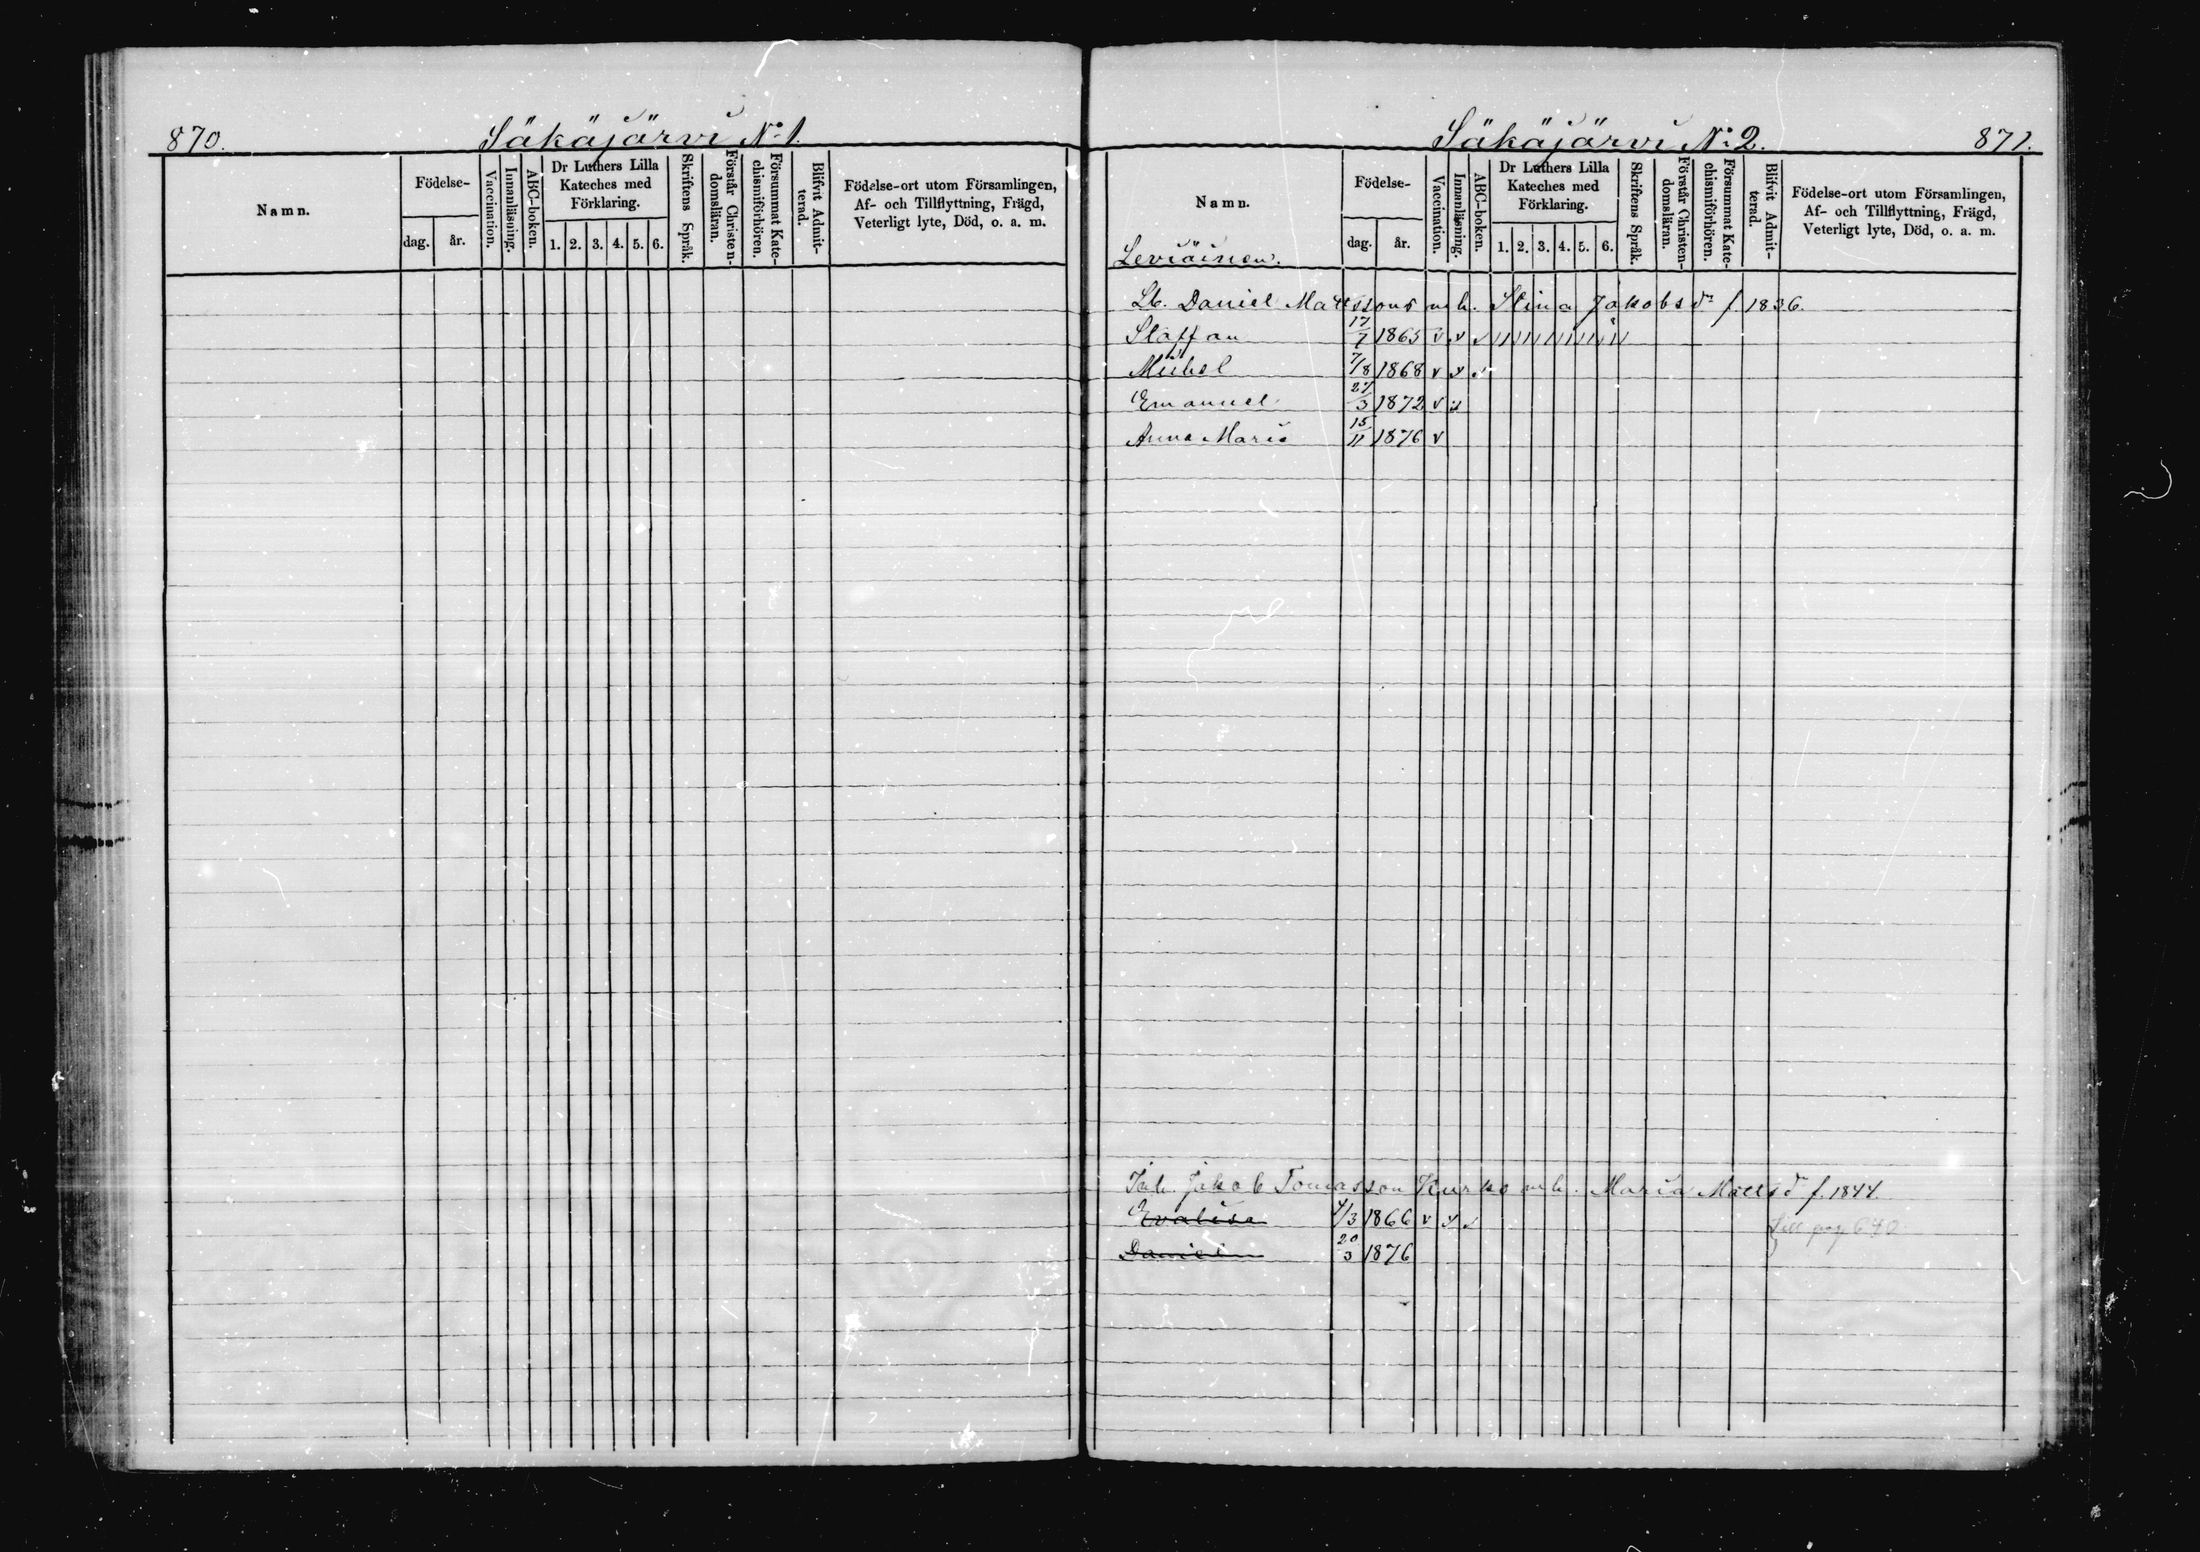 870. Säkäjärvi No 1.
Namn.
Födelse-
dag. år.
Vaccination.
Innanläsning.
ABC-boken.
Dr Luthers Lilla
Kateches med
Förklaring.
1. 2. 3. 4. 5. 6.
Skriftens Språk.
Förstår Christen-
domsläran.
Försummat Kate-
chismiförhören.
Blifvit Admit-
terad.
Födelse-ort utom Församlingen,
Af- och Tillflyttning, Frägd,
Veterligt lyte, Död, o. a. m.
Säkäjärvi No 2. 871.
Namn.
Födelse-
dag. år.
Vaccination.
Innanläsning.
ABC-boken.
Dr Luthers Lilla
Kateches med
Förklaring.
1. 2. 3. 4. 5. 6.
Skriftens Språk.
Förstår Christen-
domsläran.
Försummat Kate-
chismiförhören.
Blifvit Admit-
terad.
Födelse-ort utom Församlingen,
Af- och Tillflyttning, Frägd,
Veterligt lyte, Död, o. a. m.
Leviäinen.
Lb. Daniel Mattssons mh. Stina Jakobsdr f. 1836.
Staffan 17/7 1865 v v v
Mikel 7/8 1868 v v v
Emanuel 27/3 1872 v v
Anna Maria 15/11 1876 v
Inh. Jakob Tomasson Kurko mh. Maria Mattsdr f. 1844.
Evalisa 4/3 1866 v v v
Till pag. 640
Daniel 20/3 1876